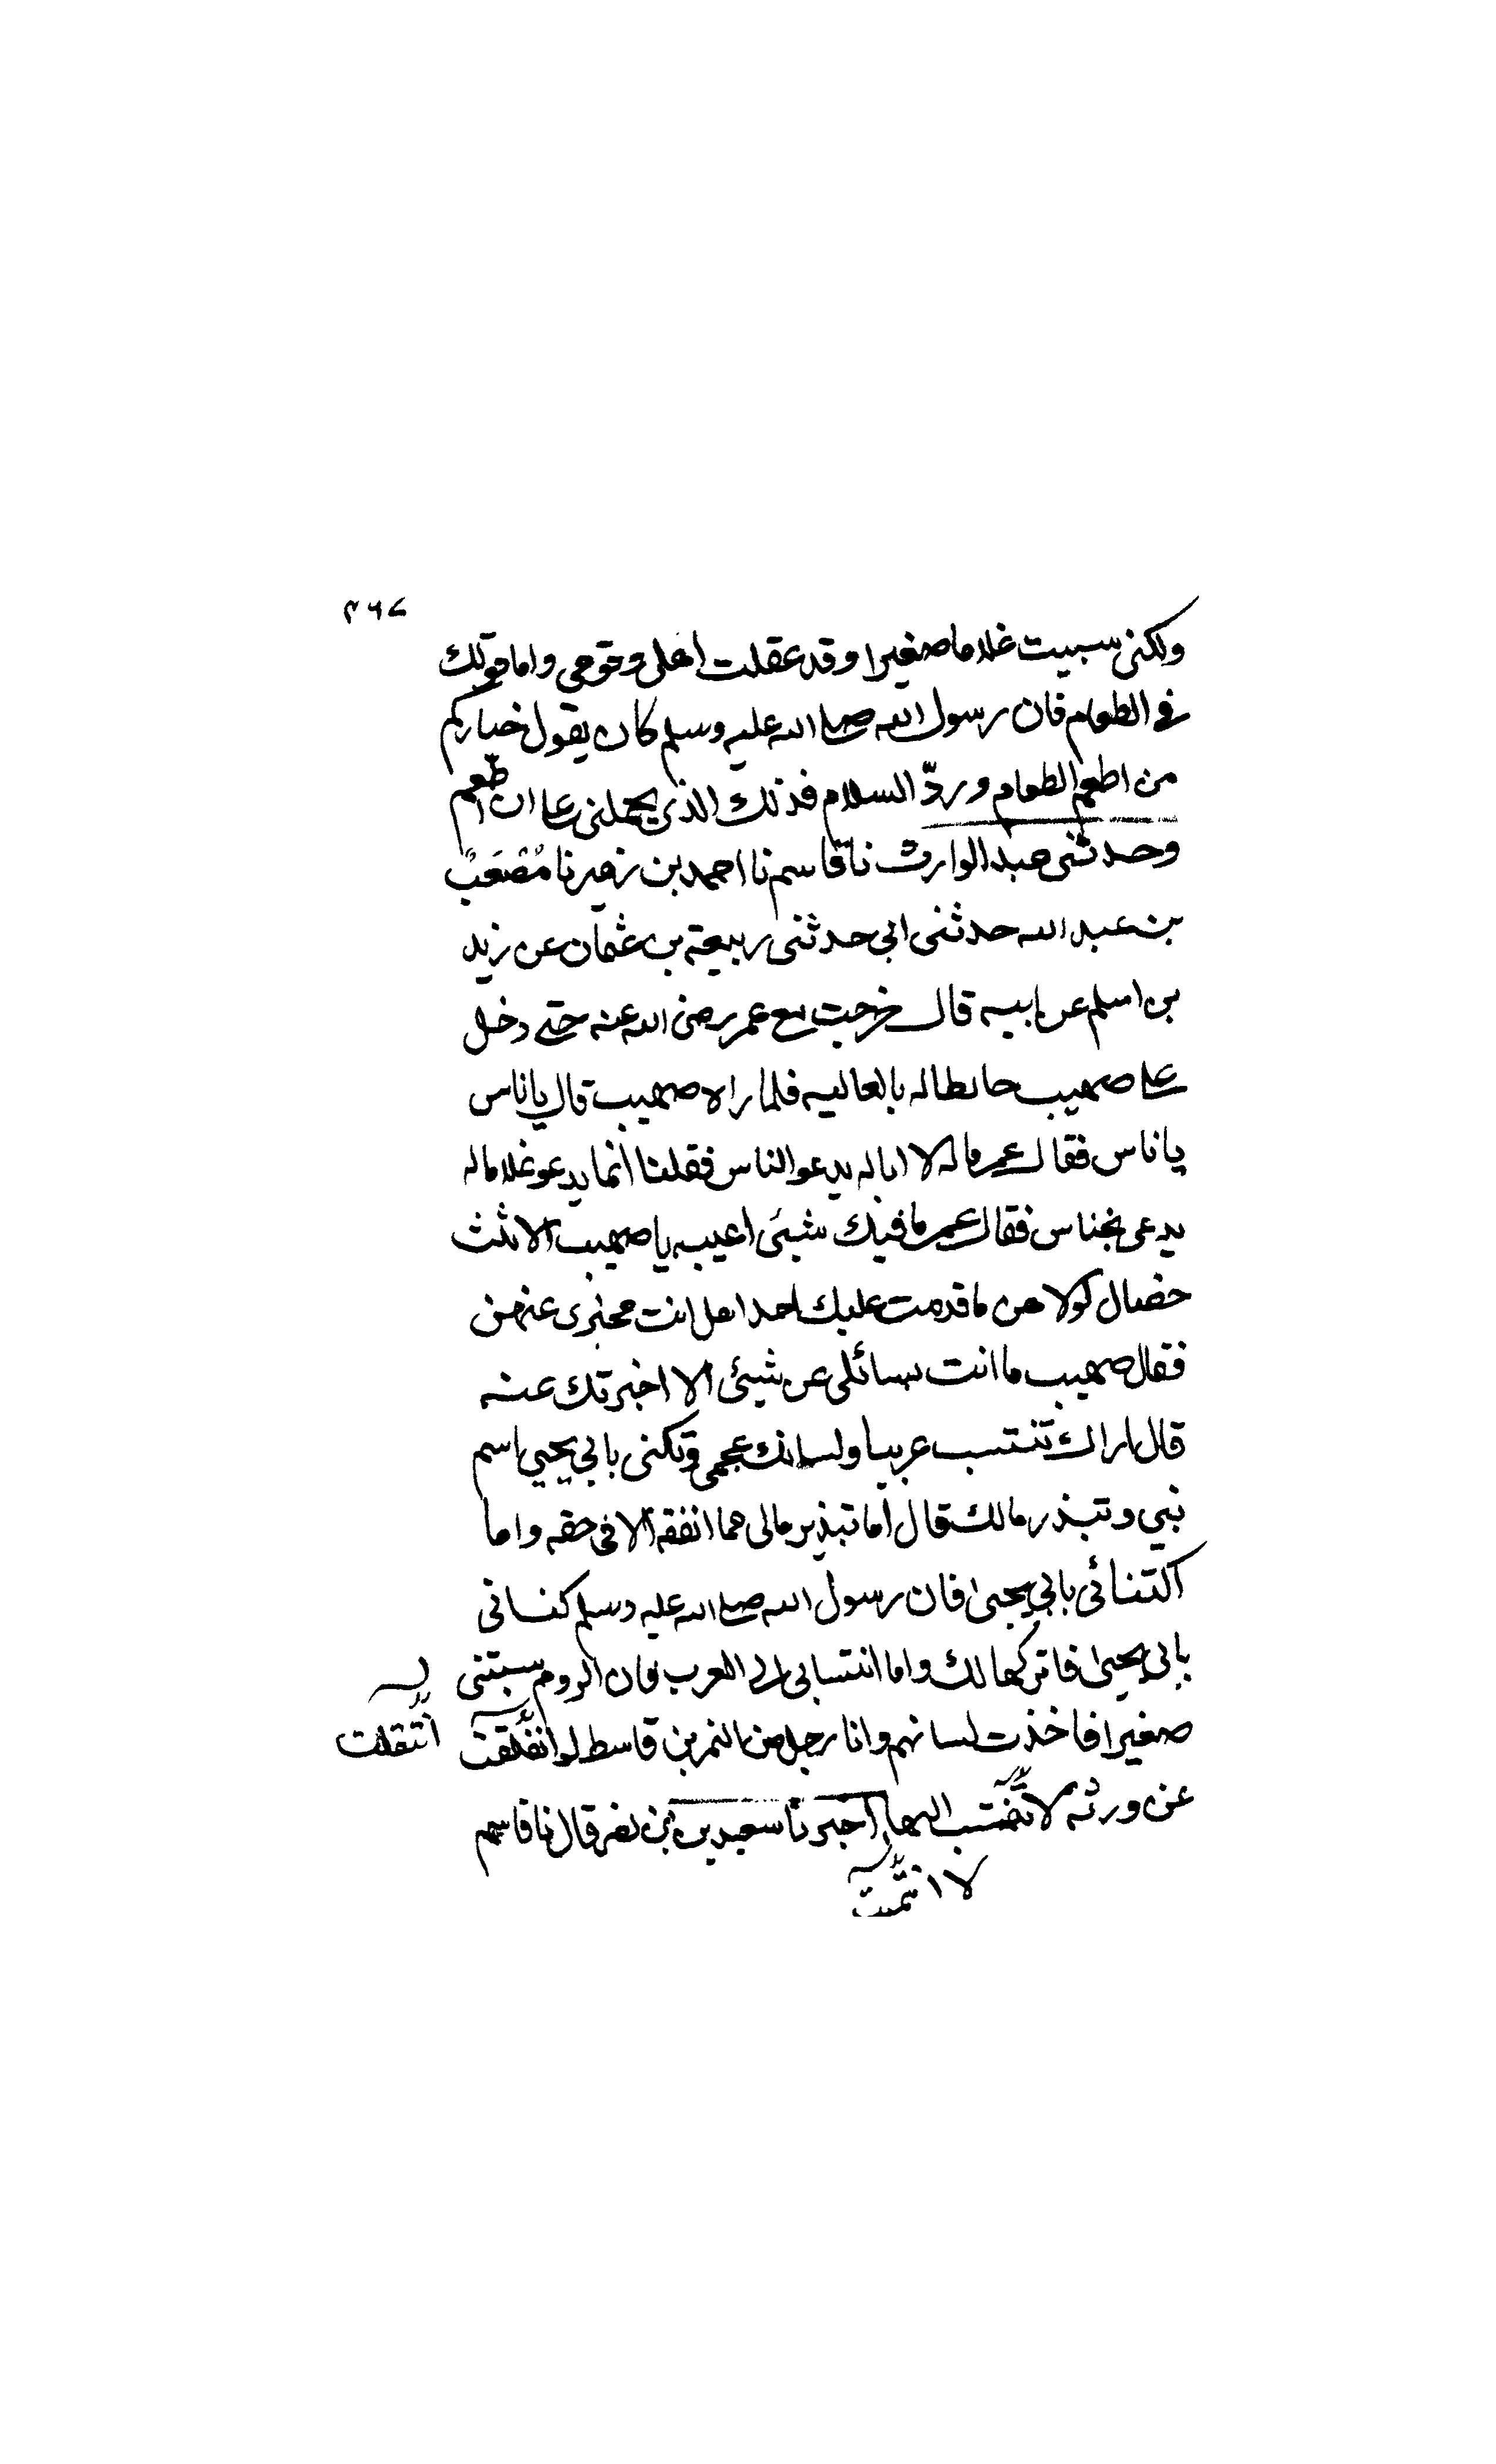 ٣٦٧
ولكنى سبيت غلاما صغيرا وقد عقلت اهلى وقومى واما قولك
فى الطعام فان رسول الله صلى الله عليه وسلم كان يقول خياركم
من اطعم الطعام وردّ السلام فذلك الذى يحملنى على ان اطعم
وحدثنى عبد الوارث نا قاسم نا احمد بن زهير نا مُصْعَبُ
بن عبد الله حدثنى ابى حدثنى ربيعة بن عثمان عن زيد
بن اسلم عن ابيه قال خرجت مع عمر رضى الله عنه حتى دخل
على صهيب حائطا له بالعاليه فلما راه صهيب قال يا ناس
يا ناس فقال عمر ماله لا ابا له يدعو الناس فقلنا انما يدعو غلاما له
يدعى نجناس فقال عمر ما فيك شيئ اعيبه يا صهيب الا ثلث
خصال لولا هن ما قدمت عليك احدا هل انت مخبرى عنهن
فقال صهيب ما انت بسائلى عن شيئى الا اخبرتك عنه
قال اراك تنتسب عربيا ولسانك عجمى وتكنى بابى يحيى اسم
نبى وتبذر مالك قال اما تبذير مالى فما انفقه الا فى حقه واما
اكتنائى بابى يحيى فان رسول الله صلى الله عليه وسلم كنانى
بابى يحيى فاتركها لك واما انتسابى الى العرب فان الروم سبتنى
صغيرا فاخذت لسانهم وانا رجل من النمر بن قاسط لو انفلقت
انتقلت
عن روثه لا تنتسب اليها اخبرنا سعيد بن نصر قال نا قاسم
لا انتميت